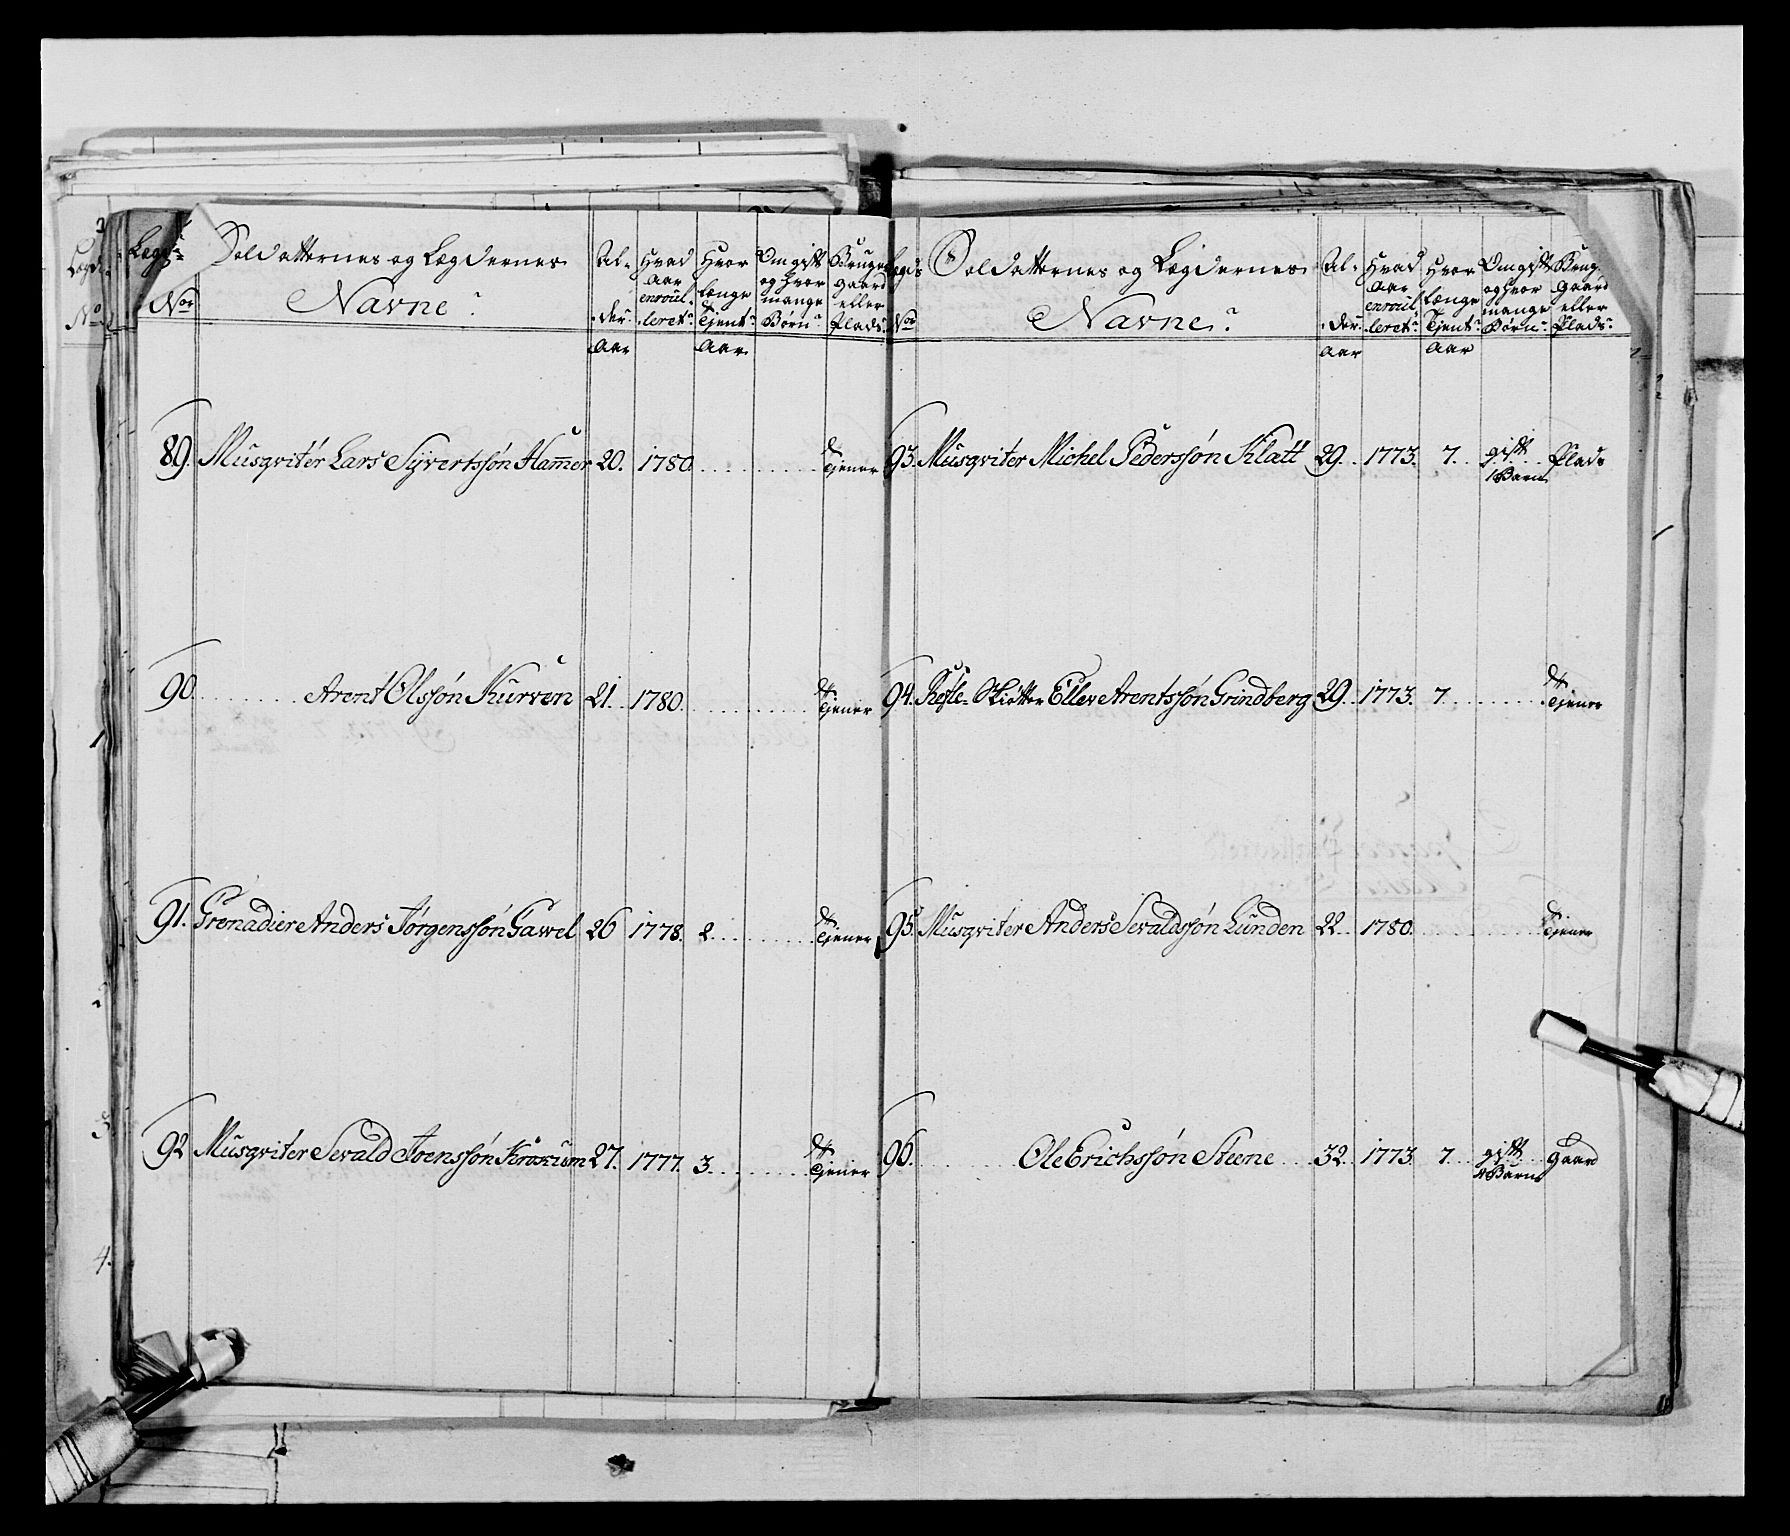 Legds Nor
Soldatternes og Lægdernes Navne.
Al-der Aar
Hvad Aar enroulleret.
Hvor længe Tjent. Aar
Om gift og hvor mange Børn.
Bruger gaard eller Plads.
89. Musqviter Lars Sÿvertssøn Hammer 20. 1780. Tjener
90. Arent Olssøn Kurven 21. 1780. Tjener
91. Grenadier Anders Jørgenssøn Gawel 26 1778. 2. Tjener
92 Musqviter Sevald Joenssøn 27. 1777. 3. Tjener
Legds Nor
Soldatternes og Lægdernes Navne.
Al-der Aar
Hvad Aar enroulleret.
Hvor længe Tjent. Aar
Om gift og hvor mange Børn.
Brug. Gaard eller Plads.
93. Musqviter Michel Pederssøn Klatt 29. 1773. 7. gift 1 Barn Plads
94. Skiøtter Ellev Arentssøn Grindberg 29. 1773. 7. Tjener
95. Musqviter Anders Sevaldssøn Lunden 22. 1780. Tjener
96. Ole Erichssøn Steene 32. 1773. 7. gift 4 Barn Gaard